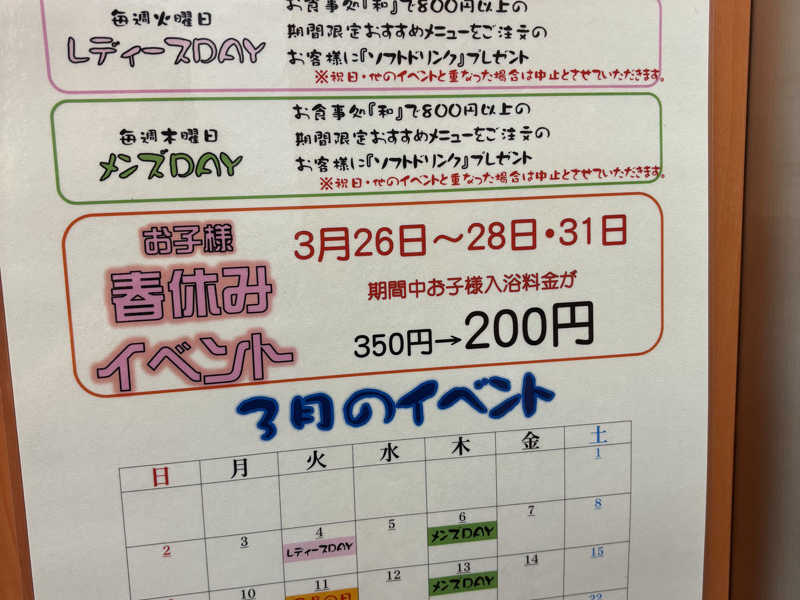 お食事処『和』で800円以上の
毎週火曜日
期間限定おすすめメニューをご注文の
レディースDAY
お客様に『ソフトドリンク』プレゼント
※祝日・他のイベントと重なった場合は中止とさせていただきます。
お食事処『和』で800円以上の
毎週木曜日
期間限定おすすめメニューをご注文の
メンズDAY
お客様に『ソフトドリンク』プレゼント
※祝日・他のイベントと重なった場合は中止とさせていただきます。
お子様
春休み
イベント
3月26日～28日・31日
期間中お子様入浴料金が
350円→200円
3月のイベント
日 月 火 水 木 金 土
1
2 3 4 5 6 7 8
レディースDAY メンズDAY
10 11 12 13 14 15
メンズDAY
22